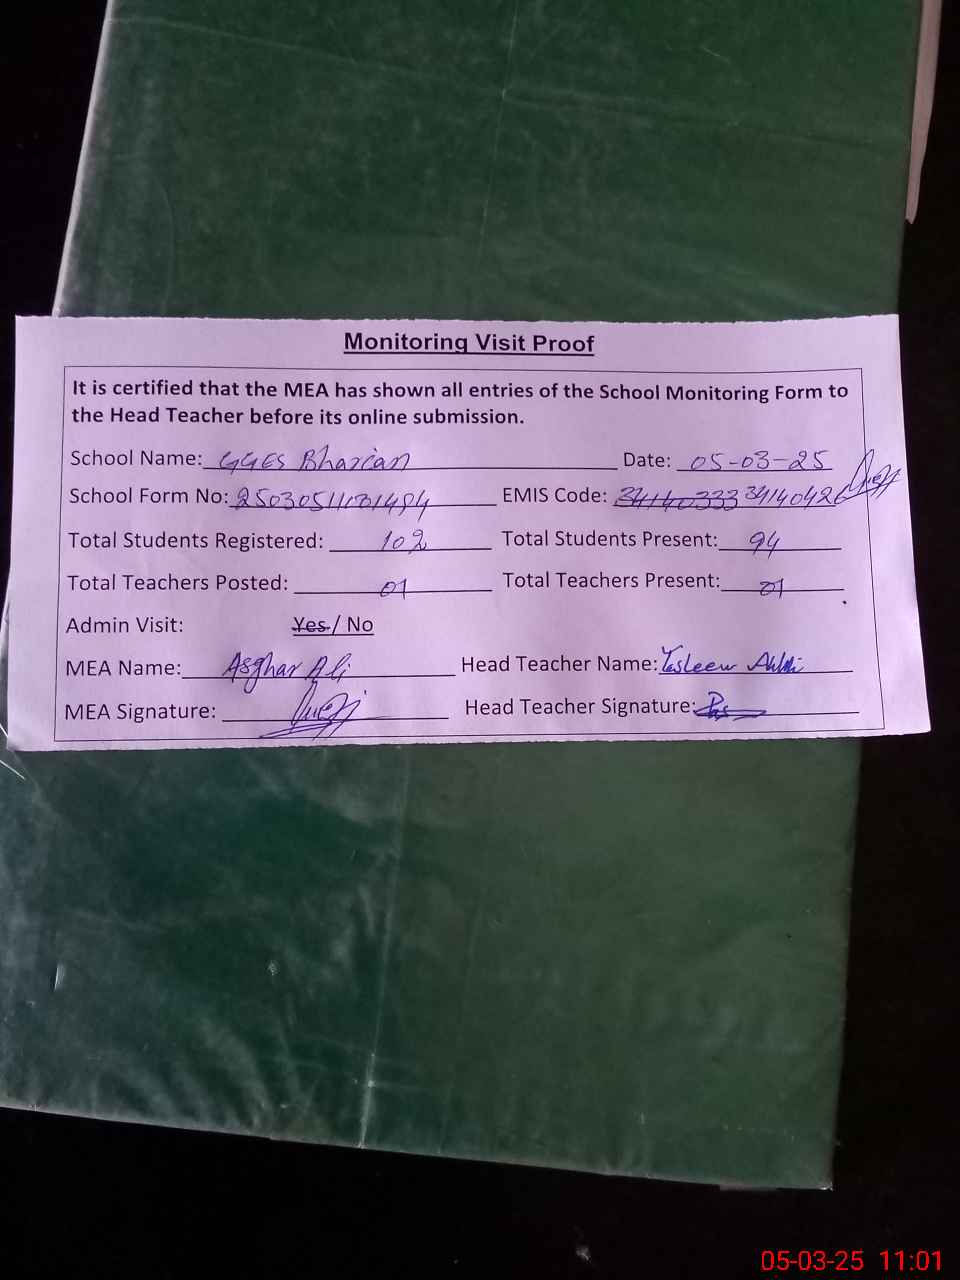 Monitoring Visit Proof
It is certified that the MEA has shown all entries of the School Monitoring Form to
the Head Teacher before its online submission.
School Name: GGES Bharian Date: 05-03-25
School Form No: EMIS Code: 34140333 34140426
Total Students Registered: 102 Total Students Present: 94
Total Teachers Posted: 01 Total Teachers Present: 01
Admin Visit: Yes / No
MEA Name: Asghar Ali Head Teacher Name:
MEA Signature: Head Teacher Signature:
05-03-25 11:01